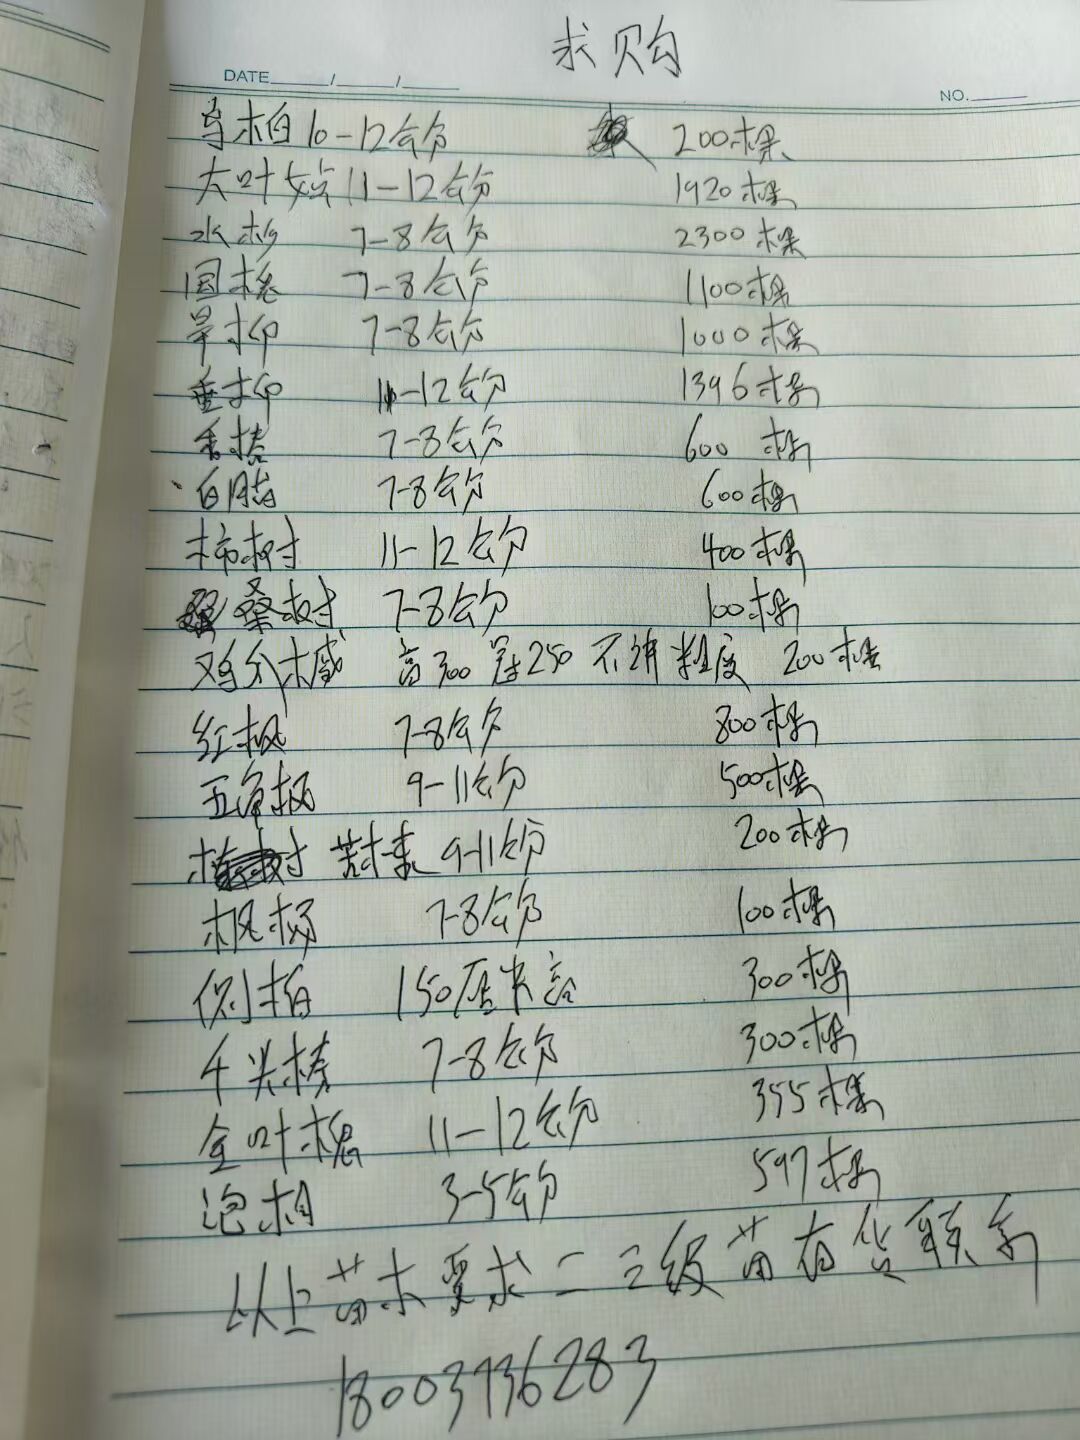 求购
DATE / /
NO.
乌柏 10-12公分 200棵
大叶女贞 11-12公分 1920棵
水杉 7-8公分 2300棵
国槐 7-8公分 1100棵
旱柳 7-8公分 1000棵
垂柳 11-12公分 1396棵
香椿 7-8公分 600棵
白腊 7-8公分 600棵
柿树 11-12公分 400棵
桑树 7-8公分 100棵
鸡爪槭 高300冠250不讲粗度 200棵
红枫 7-8公分 800棵
五角枫 9-11公分 500棵
苦楝 9-11公分 200棵
枫杨 7-8公分 100棵
侧柏 150厘米高 300棵
千头椿 7-8公分 300棵
金叶槐 11-12公分 355棵
泡桐 3-5公分 597棵
以上苗木要求二三级苗有货联系
18003736283